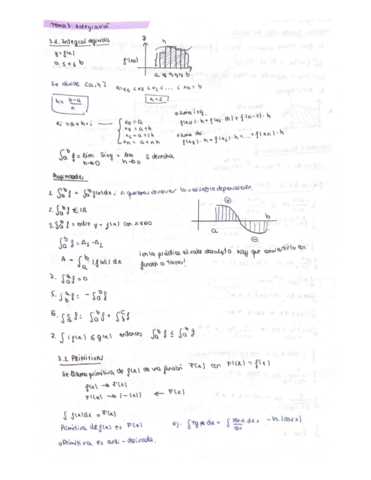 Tema 3: Integración
3.1. Integral definida
y = f(x)
a ≤ x ≤ b
f(x)
a b
Se divide [a,b] a = x₀ < x₁ < x₂ < ... < xn = b
h = b-a / n
xi = a + h·i
x₀ = a
x₁ = a + h
xn = a + nh
∫ₐᵇ f = lim Sizq = lim S derecha
h→0 h→0
Propiedades
1. ∫ₐᵇ f = ∫ₐᵇ f(x)dx, si queremos la variable dependiente
2. ∫ₐᵇ f ∈ ℝ
3. ∫ₐᵇ f = entre y = f(x) con
a b
∫ₐᵇ f = A₁ - A₂
A = ∫ₐᵇ |f(x)| dx
¡en la práctica el valor absoluto hay que convertirlo en
función a trozos!
∫ₐᵃ f = 0
5. ∫ f = -∫ₐᵇ f
6. ∫ f = ∫ₐᵇ f + ∫ f
7. f(x) ≤ g(x) entonces ∫ₐᵇ f ≤ ∫ₐᵇ g
3.2. PRIMITIVAS
Se llama primitiva de f(x) de una función F(x) con F'(x) = f(x)
f(x) → F(x)
← F(x)
∫ f(x)dx = F(x)
Primitiva de f(x) es F(x)
ej. ∫ tg x dx = ∫ dx = -ln|cos x|
Primitiva es anti-derivada.